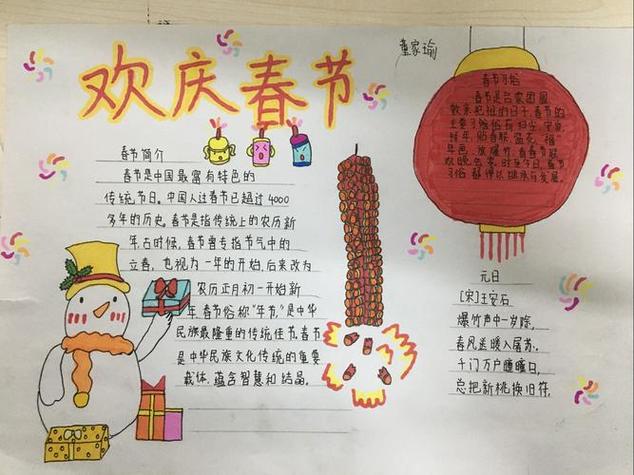 欢庆春节
董家瑜
春节简介
春节是中国最富有特色的
传统节日。中国人过春节已超过4000
多年的历史。春节是指传统上的农历新
年古时候，春节曾专指节气中的
立春，也视为一年的开始，后来改为
农历正月初一开始新
年 春节俗称“年节”是中华
民族最隆重的传统佳节。春节
是中华民族文化传统的重要
载体，蕴含智慧和结晶。
春节习俗
春节是合家团圆
敦亲祀祖的日子，春节的
主要习俗有扫尘 守岁
拜年 贴春联
年画 放爆竹 看春节联
欢晚会
习俗都得以继承与发展。
元日
[宋]王安石
爆竹声中一岁除，
春风送暖入屠苏。
千门万户曈曈日，
总把新桃换旧符。